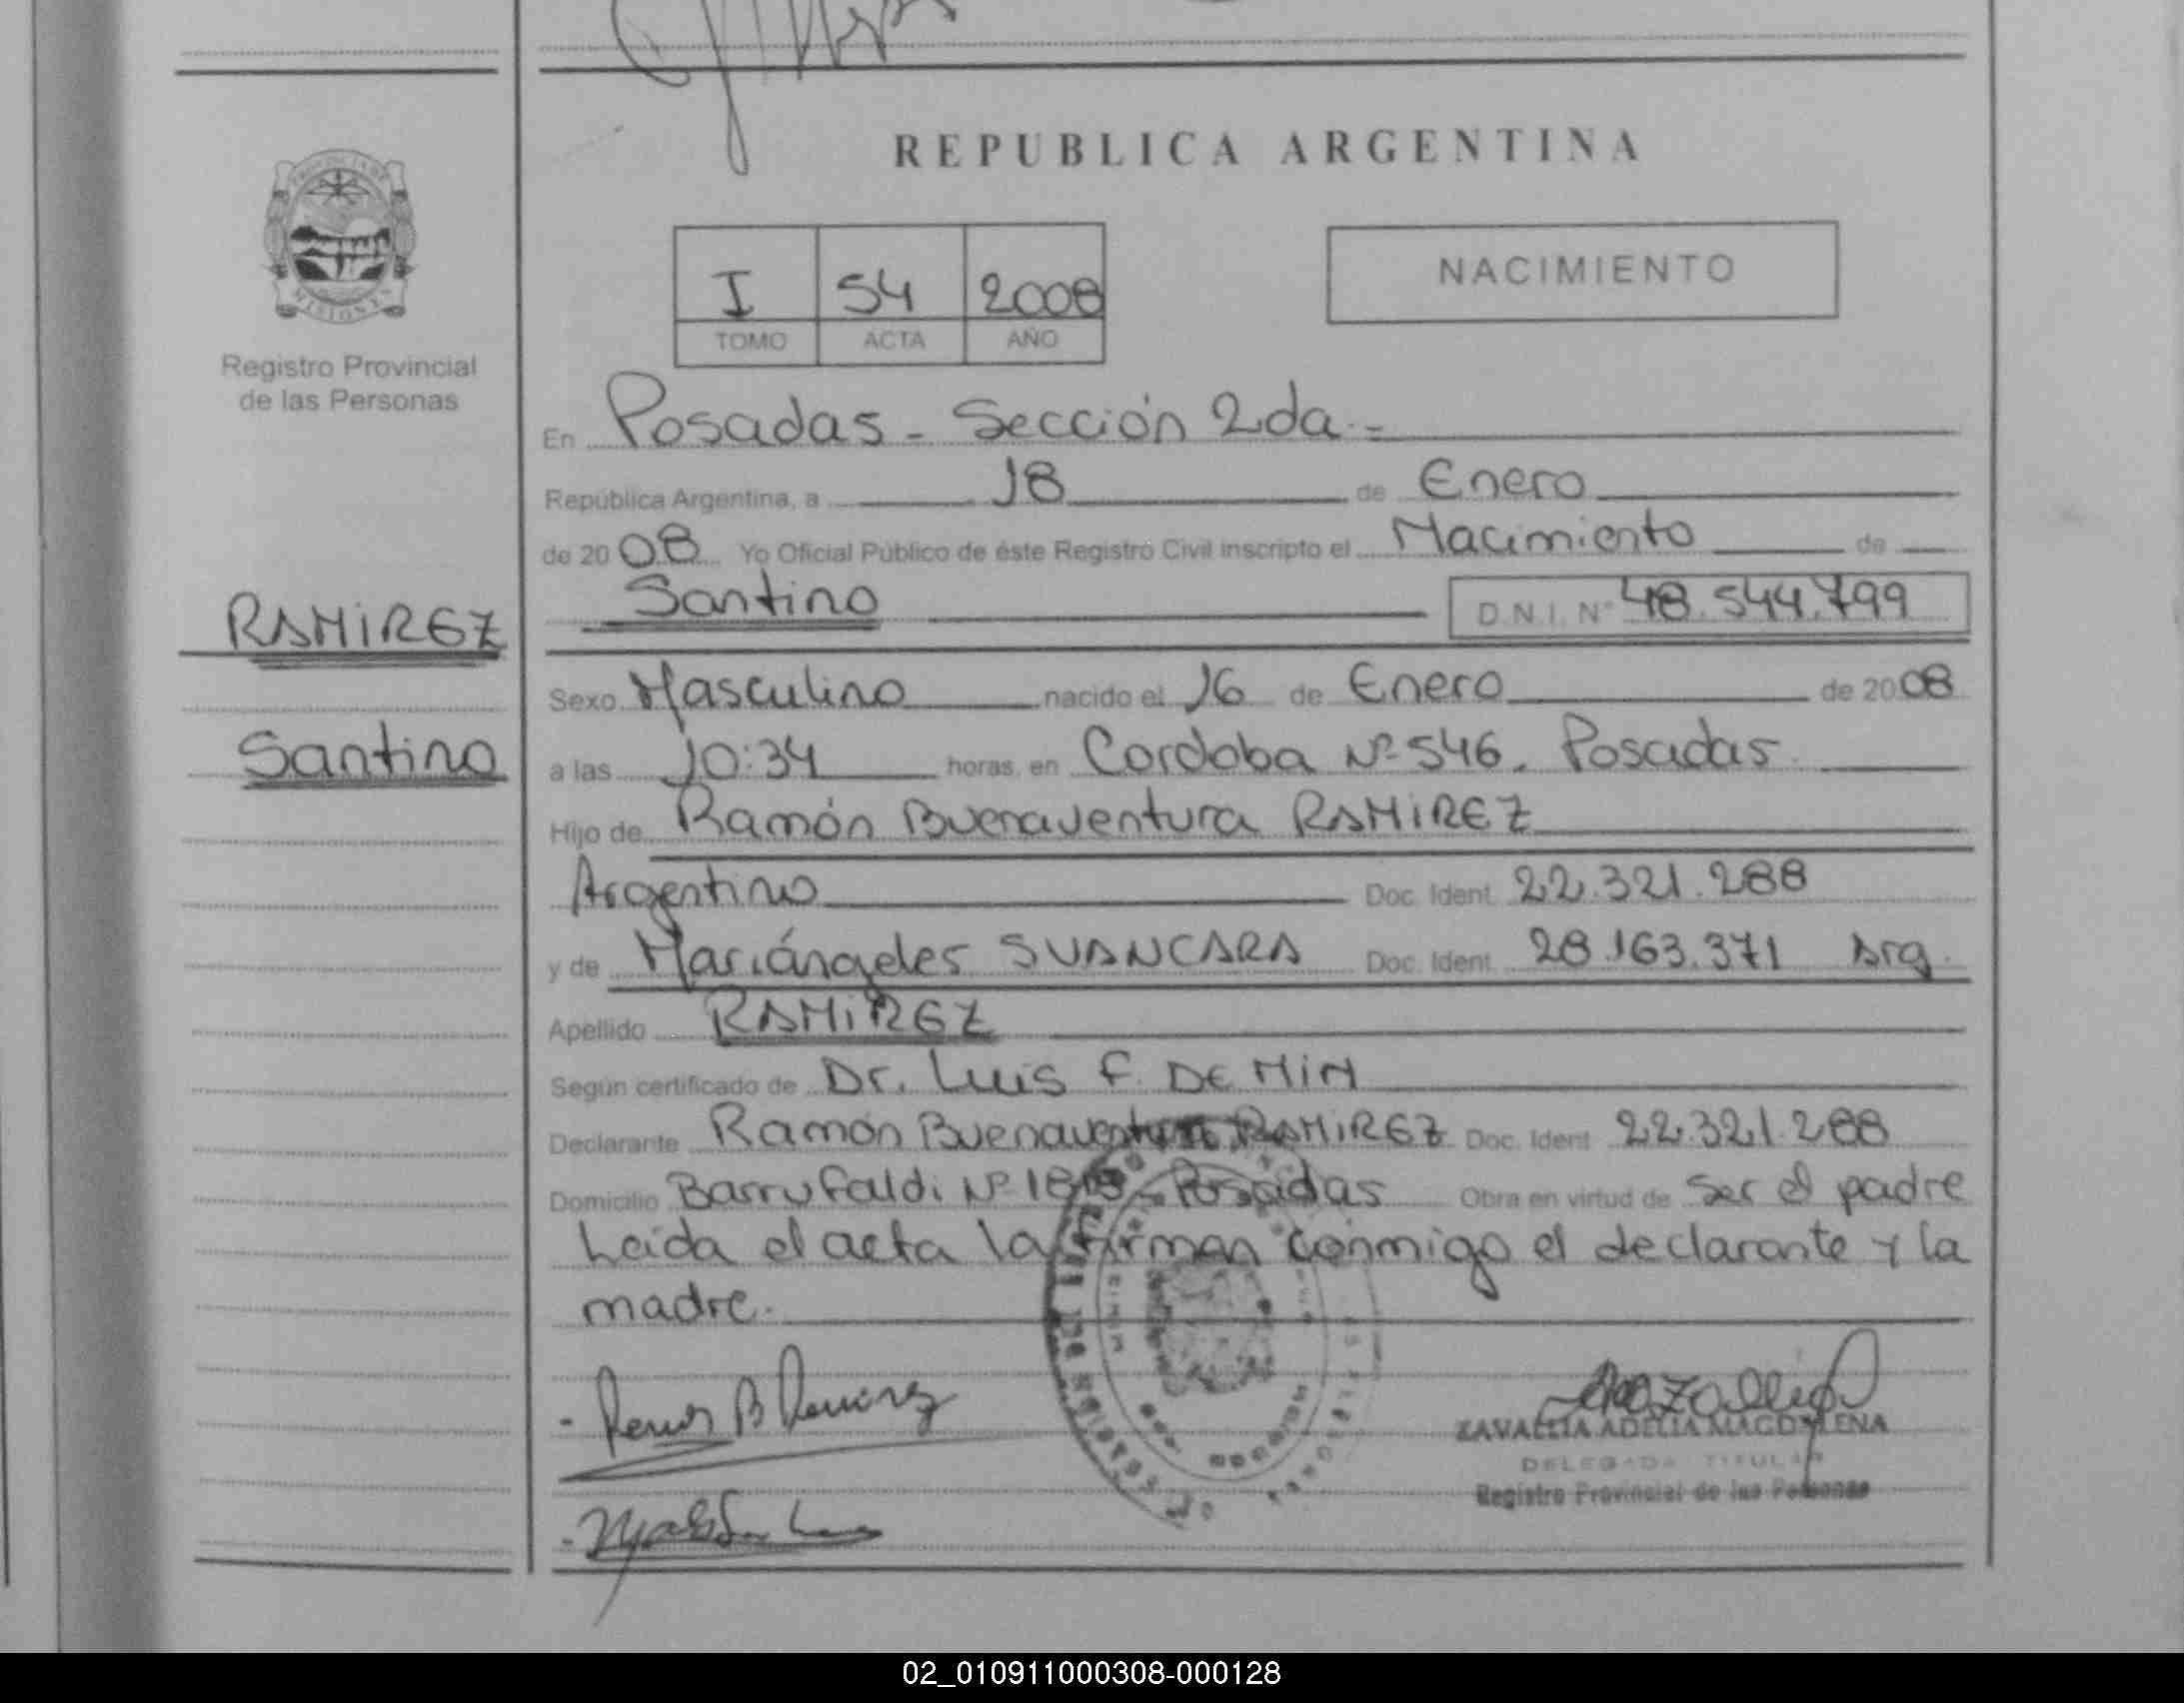 REPUBLICA ARGENTINA
PROVINCIA DE
MISIONES
Registro Provincial
de las Personas
I 54 2008
TOMO ACTA AÑO
NACIMIENTO
En Posadas - Sección 2da.-
República Argentina, a 18 de Enero
de 2008 Yo Oficial Público de éste Registro Civil inscripto el Nacimiento de
Santino D.N.I. N° 48.544.799
RAMIREZ
Santino
Sexo Masculino nacido el 16 de Enero de 2008
a las 10:34 horas, en Cordoba Nº 546. Posadas.
Hijo de Ramón Buenaventura RAMIREZ
Argentino Doc. Ident. 22.321.288
y de Mariángeles SVANCARA Doc. Ident. 28.163.371 Arg.
Apellido RAMIREZ
Según certificado de Dr. Luis F. DE MIN
Declarante Ramón Buenaventura RAMIREZ Doc. Ident. 22.321.288
Domicilio Barrufaldi Nº Posadas Obra en virtud de ser el padre
Leida el acta la firman conmigo el declarante y la
madre.
Ramón B Ramirez
ZAVALLIA ADELIA MAGDALENA
DELEGADA TITULAR
Registro Provincial de las Personas
02_010911000308-000128